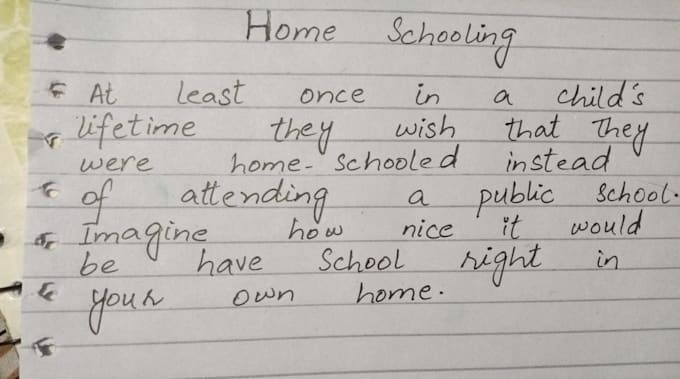 Home Schooling
At least once in a child's
lifetime they wish that they
were home-schooled instead
of attending a public school.
Imagine how nice it would
be have School right in
your own home.